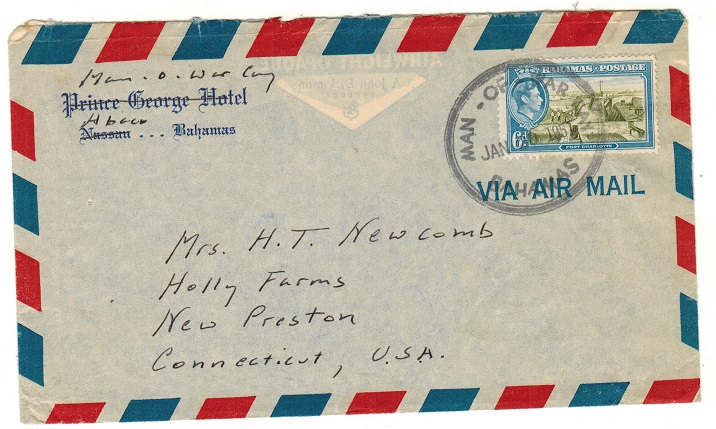 Man-o-War Cay
Prince George Hotel
Abaco
Nassau ... Bahamas
AIRWEIGHT OPAQUE
BAHAMAS · POSTAGE
6d
FORT CHARLOTTE
MAN - OF - WAR
JAN 195
BAHAMAS
VIA AIR MAIL
Mrs. H. T. Newcomb
Holly Farms
New Preston
Connecticut, U.S.A.